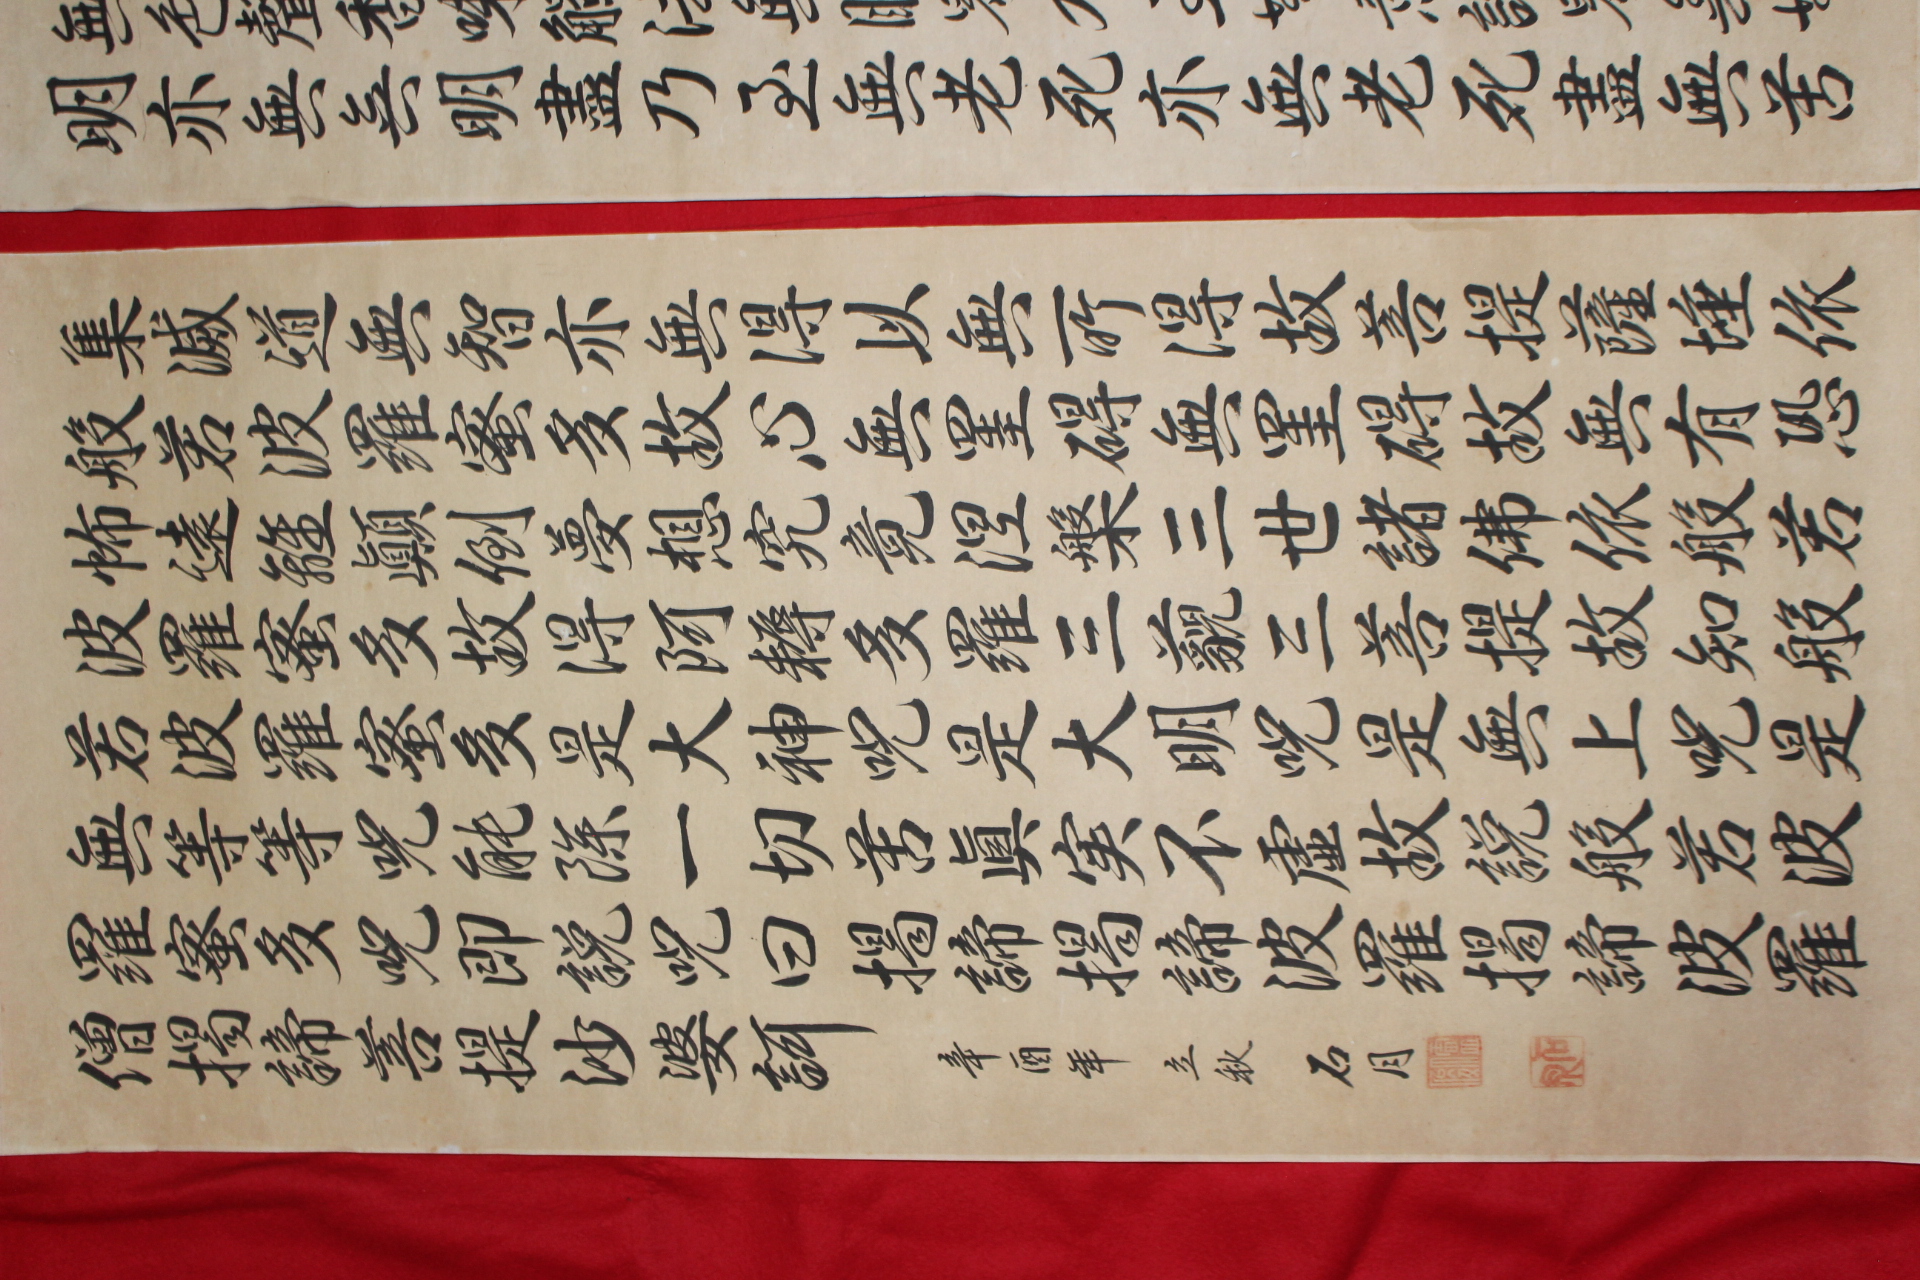 無色聲香味觸法無眼界乃至無意識界無無
明亦無無明盡乃至無老死亦無老死盡無苦
集滅道無智亦無得以無所得故菩提薩埵依
般若波羅蜜多故心無罣碍無罣碍故無有恐
怖遠離顚倒夢想究竟涅槃三世諸佛依般若
波羅蜜多故得阿耨多羅三藐三菩提故知般
若波羅蜜多是大神呪是大明呪是無上呪是
無等等呪能除一切苦眞実不虛故説般若波
羅蜜多呪即説呪曰揭諦揭諦波羅揭諦波羅
僧揭諦菩提沙婆訶 辛酉年 立秋 石月